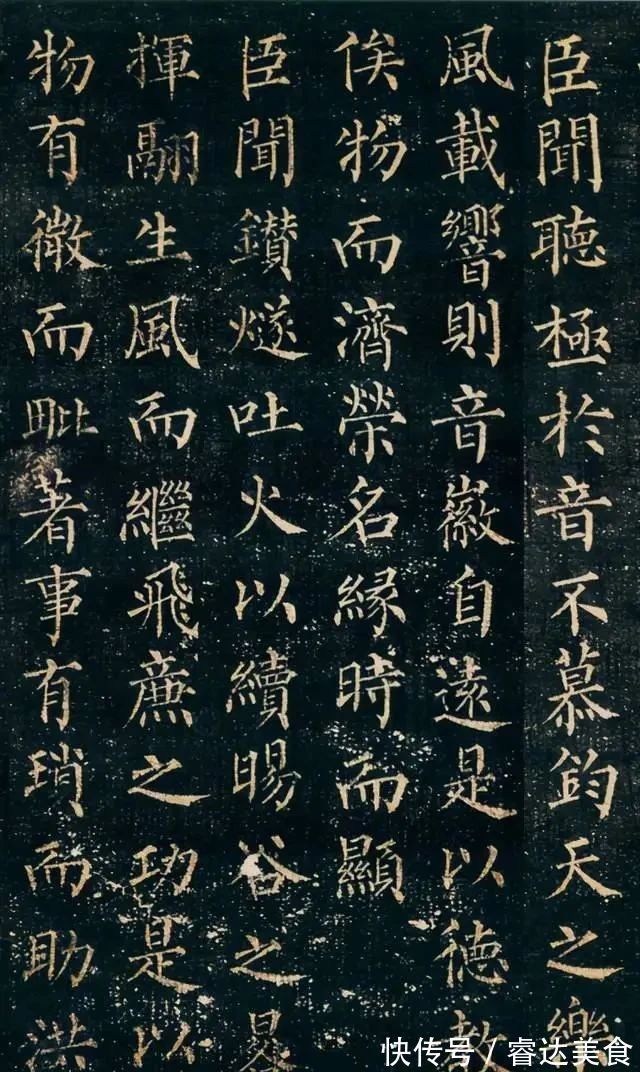 臣聞聽極於音不慕鈞天之樂
風載響則音徽自遠是以德教
俟物而濟榮名緣時而顯
臣聞鑽燧吐火以續暘谷之晷
揮翮生風而繼飛廉之功是以
物有微而毗著事有瑣而助洪
快传号 / 睿达美食